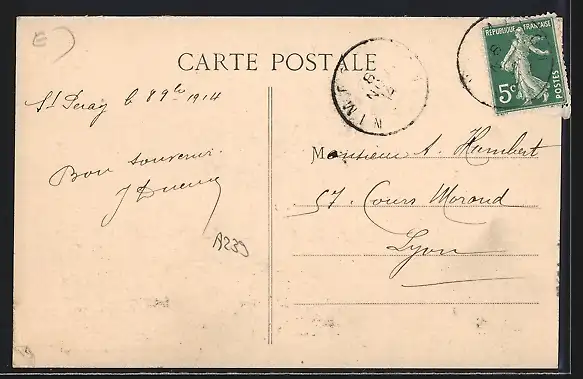 CARTE POSTALE
RÉPUBLIQUE FRANÇAISE
5c
POSTES
St Péray le 8 9bre 1914
Bon souvenir
A239
Monsieur A. Humbert
57. Cours Morand
Lyon